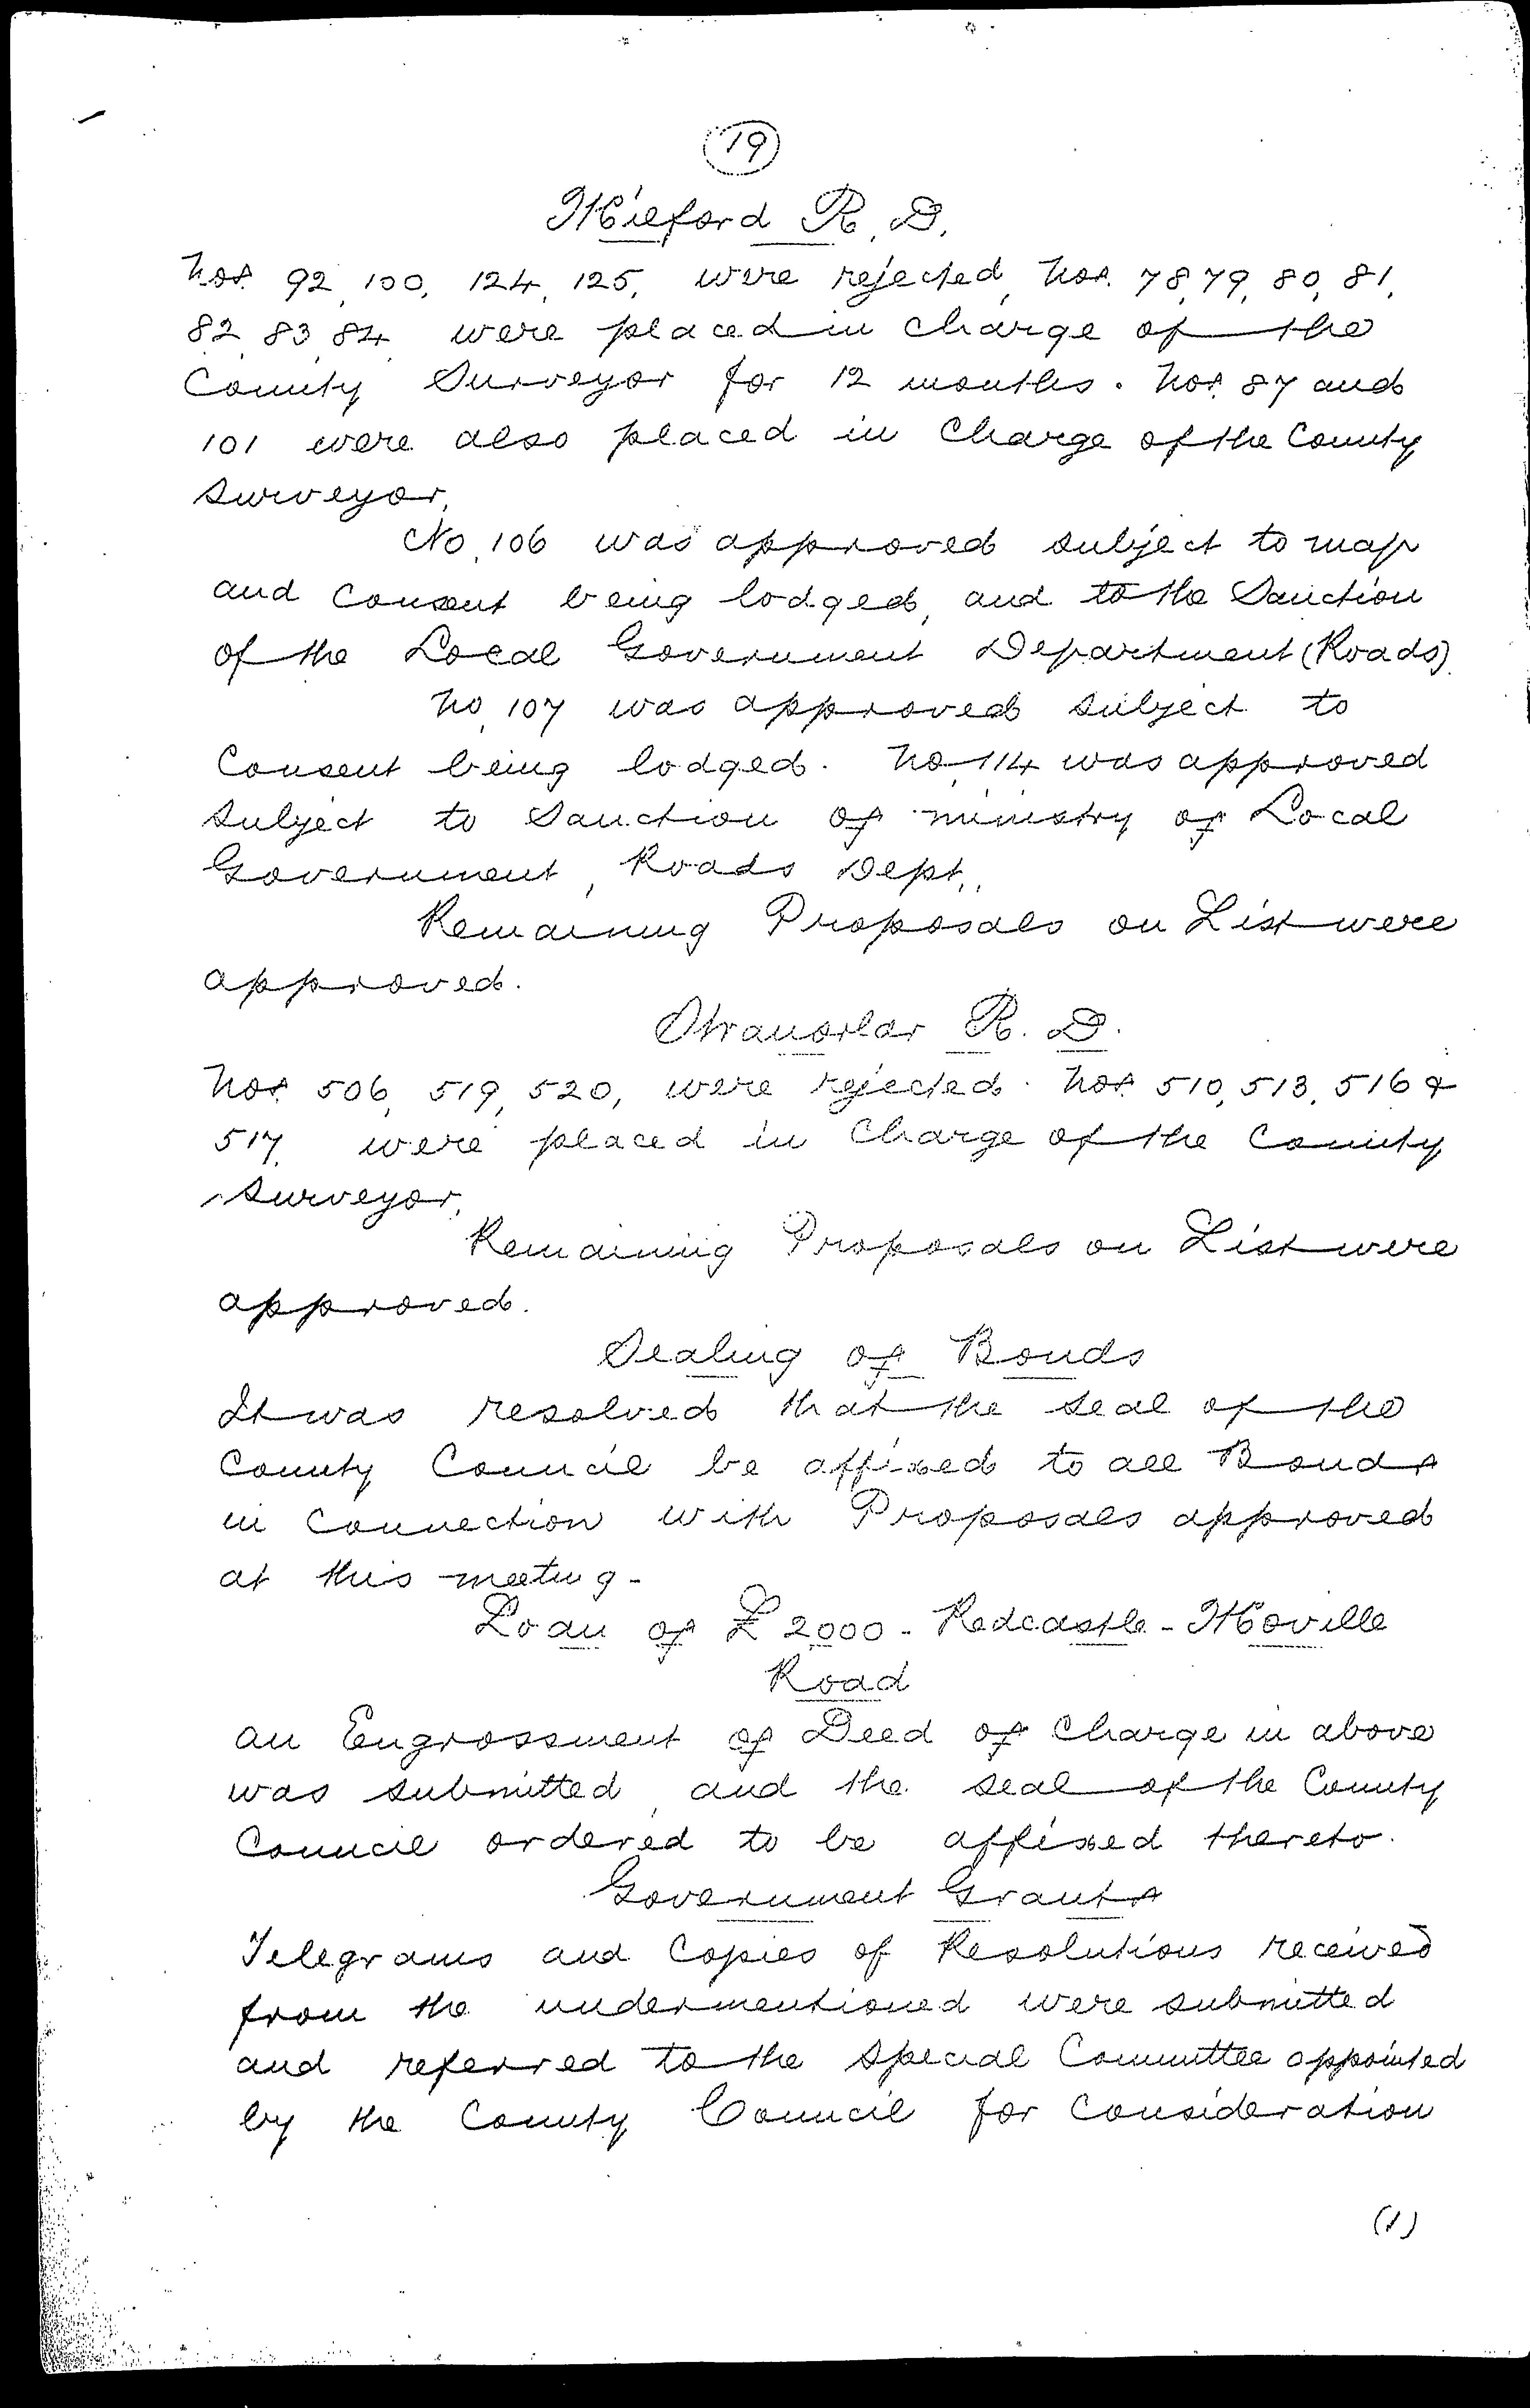 19
Milford R. D.
Nos. 92, 100, 124, 125, were rejected, Nos. 78, 79, 80, 81,
82, 83, 84, were placed in charge of the
County Surveyor for 12 months. Nos. 87 and
101 were also placed in Charge of the County
Surveyor,
No, 106 was approved subject to map
and Consent being lodged, and to the Sanction
of the Local Government Department (Roads).
No, 107 was approved subject to
Consent being lodged. No. 114 was approved
subject to Sanction of ministry of Local
Government, Roads Dept.,
Remaining Proposals on List were
approved.
Stranorlar R. D.
Nos. 506, 519, 520, were rejected. Nos. 510, 513, 516 &
517, were placed in Charge of the County
Surveyor,
Remaining Proposals on List were
approved.
Sealing of Bonds
It was resolved that the seal of the
County Council be affixed to all Bonds
in Connection with Proposals approved
at this meeting-
Loan of £2000 - Redcastle - Moville
Road
An Engrossment of Deed of Charge in above
was submitted, and the seal of the County
Council ordered to be affixed thereto.
Government Grants
Telegrams and Copies of Resolutions received
from the undermentioned were submitted
and referred to the Special Committee appointed
by the County Council for Consideration
(1)